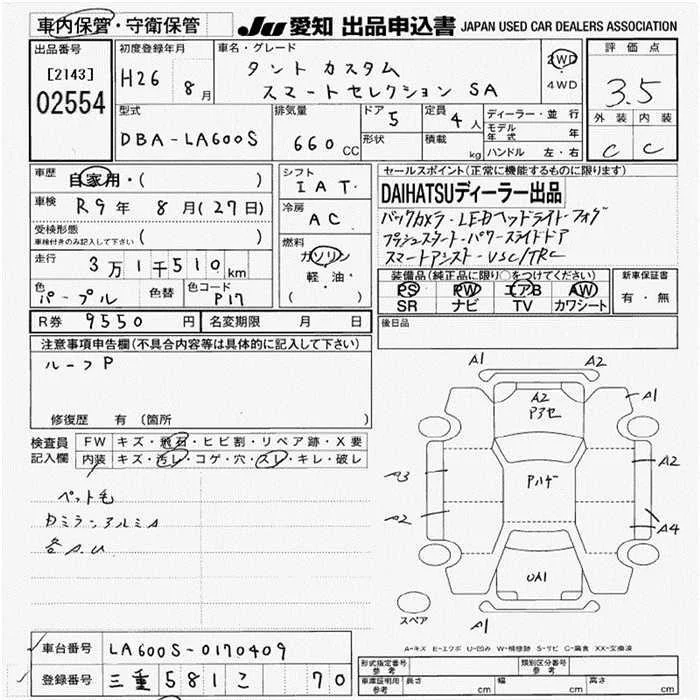 車内保管・守衛保管
JU 愛知 出品申込書 JAPAN USED CAR DEALERS ASSOCIATION
出品番号
[2143]
02554
初度登録年月
H26 8月
車名・グレード
タント カスタム
スマートセレクション SA
2WD
・
4WD
評価点
3.5
外装 内装
C C
型式
DBA-LA600S
排気量
660 CC
ドア 5
形状
定員 4人
積載 kg
ディーラー・並行
モデル年式 年
ハンドル 左・右
車歴
自家用・( )
車検 R9年 8月(27日)
受検形態
車検付きのみ記入して下さい ( )
走行 3万1千510km
色 パープル
色替
色コード P17
シフト
IAT
冷房
AC
燃料
ガソリン
軽油・
( )
セールスポイント(正常に機能するものに限ります)
DAIHATSUディーラー出品
バックカメラ・LEDヘッドライト・フォグ
プッシュスタート・パワースライドドア
スマートアシスト・VSC/TRC
装備品(純正品に限り○をつけてください)
PS PW エアB AW
SR ナビ TV カワシート
新車保証書
有・無
R券 9550円
名変期限 月 日
後日品
注意事項申告欄(不具合内容等は具体的に記入して下さい)
ルーフP
修復歴 有 (箇所
検査員記入欄
FW キズ・飛石・ヒビ割・リペア跡・X要
内装 キズ・汚レ・コゲ・穴・スレ・キレ・破レ
ペット毛
各A.U
A1 A2
A2
Pアセ
A1
A2
A3
Pハゲ
A2
A4
UA1
A1
スペア
A-キズ E-エクボ U-凹み W-補修跡 S-サビ C-腐食 XX-交換済
車台番号 LA600S-0170409
登録番号 三重 581 こ 70
形式指定番号
参考
類別区分番号
参考
車庫証明用
参考
長さ cm
幅 cm
高さ cm